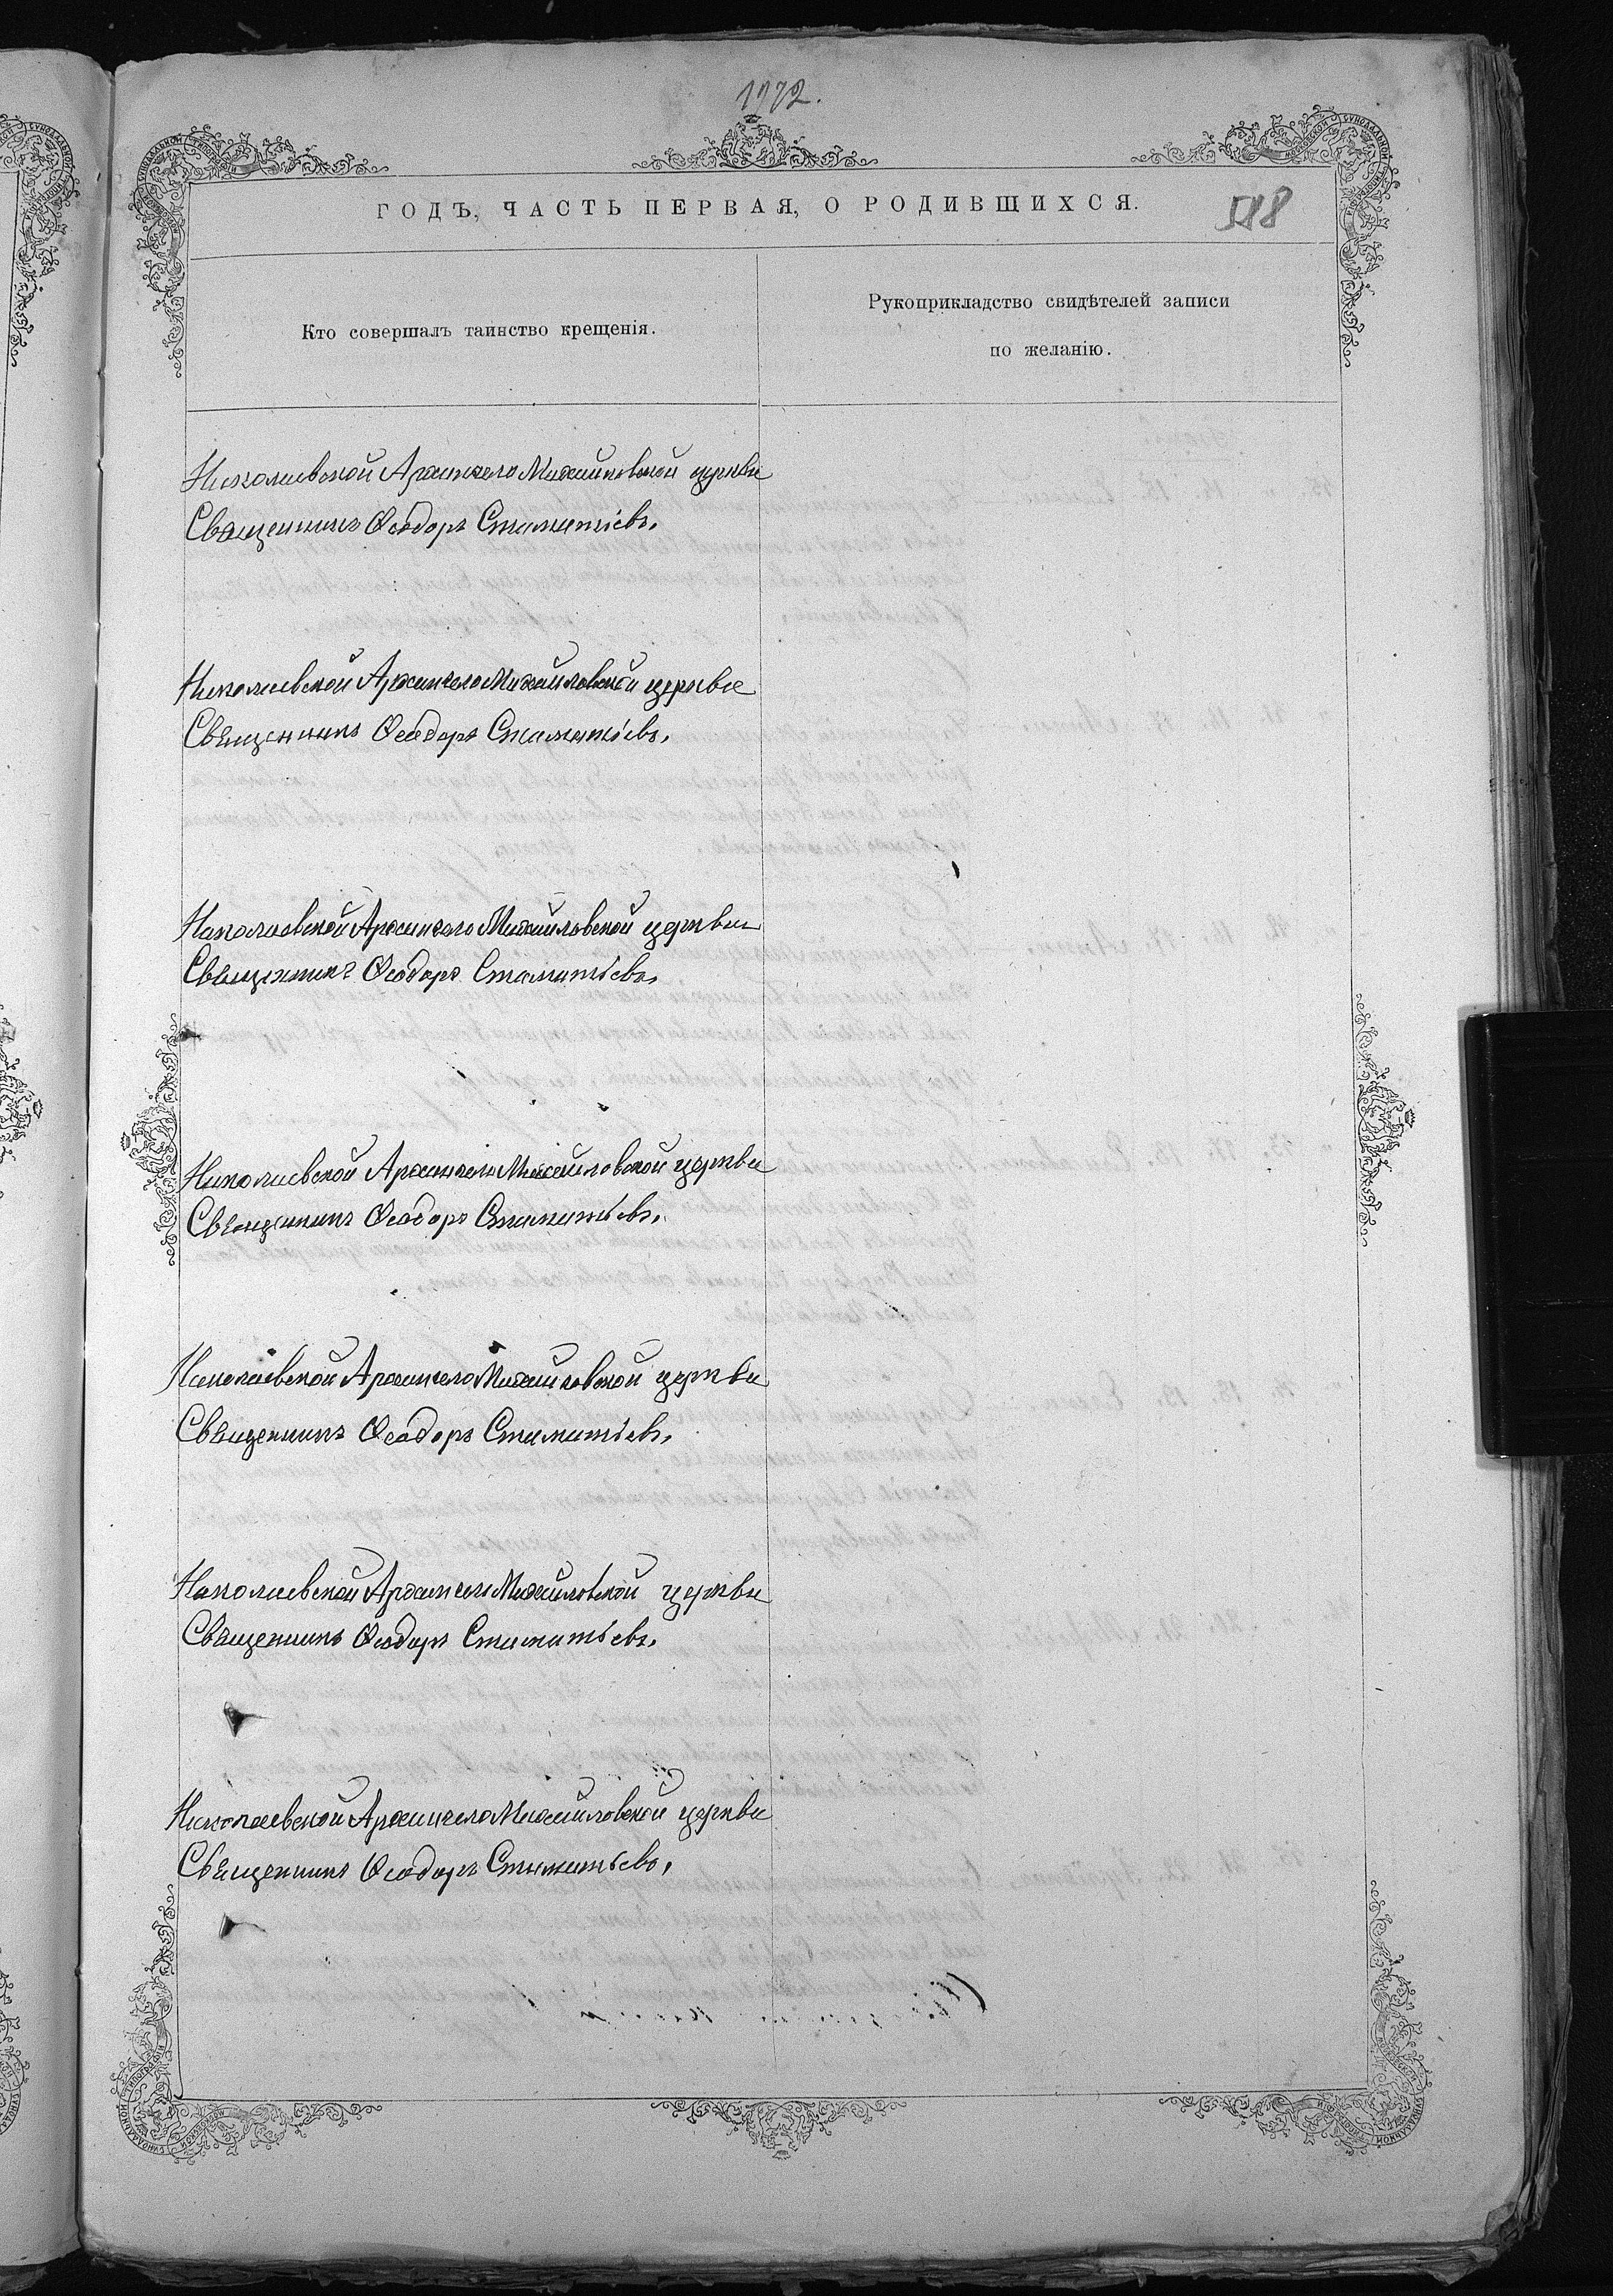 1972.
ГОДЪ, ЧАСТЬ ПЕРВАЯ, О РОДИВШИХСЯ.
Кто совершалъ таинство крещенія.
Рукоприкладство свидѣтелей записи
по желанію.
Николаевской Архангело Михайловской церкви
Священникъ Ѳеодоръ Стаматьевъ.
Николаевской Архангело Михайловской церкви
Священникъ Ѳеодоръ Стаматьевъ.
Николаевской Архангело Михайловской церкви
Священникъ Ѳеодоръ Стаматьевъ.
Николаевской Архангело Михайловской церкви
Священникъ Ѳеодоръ Стаматьевъ.
Николаевской Архангело Михайловской церкви
Священникъ Ѳеодоръ Стаматьевъ.
Николаевской Архангело Михайловской церкви
Священникъ Ѳеодоръ Стаматьевъ.
Николаевской Архангело Михайловской церкви
Священникъ Ѳеодоръ Стаматьевъ.